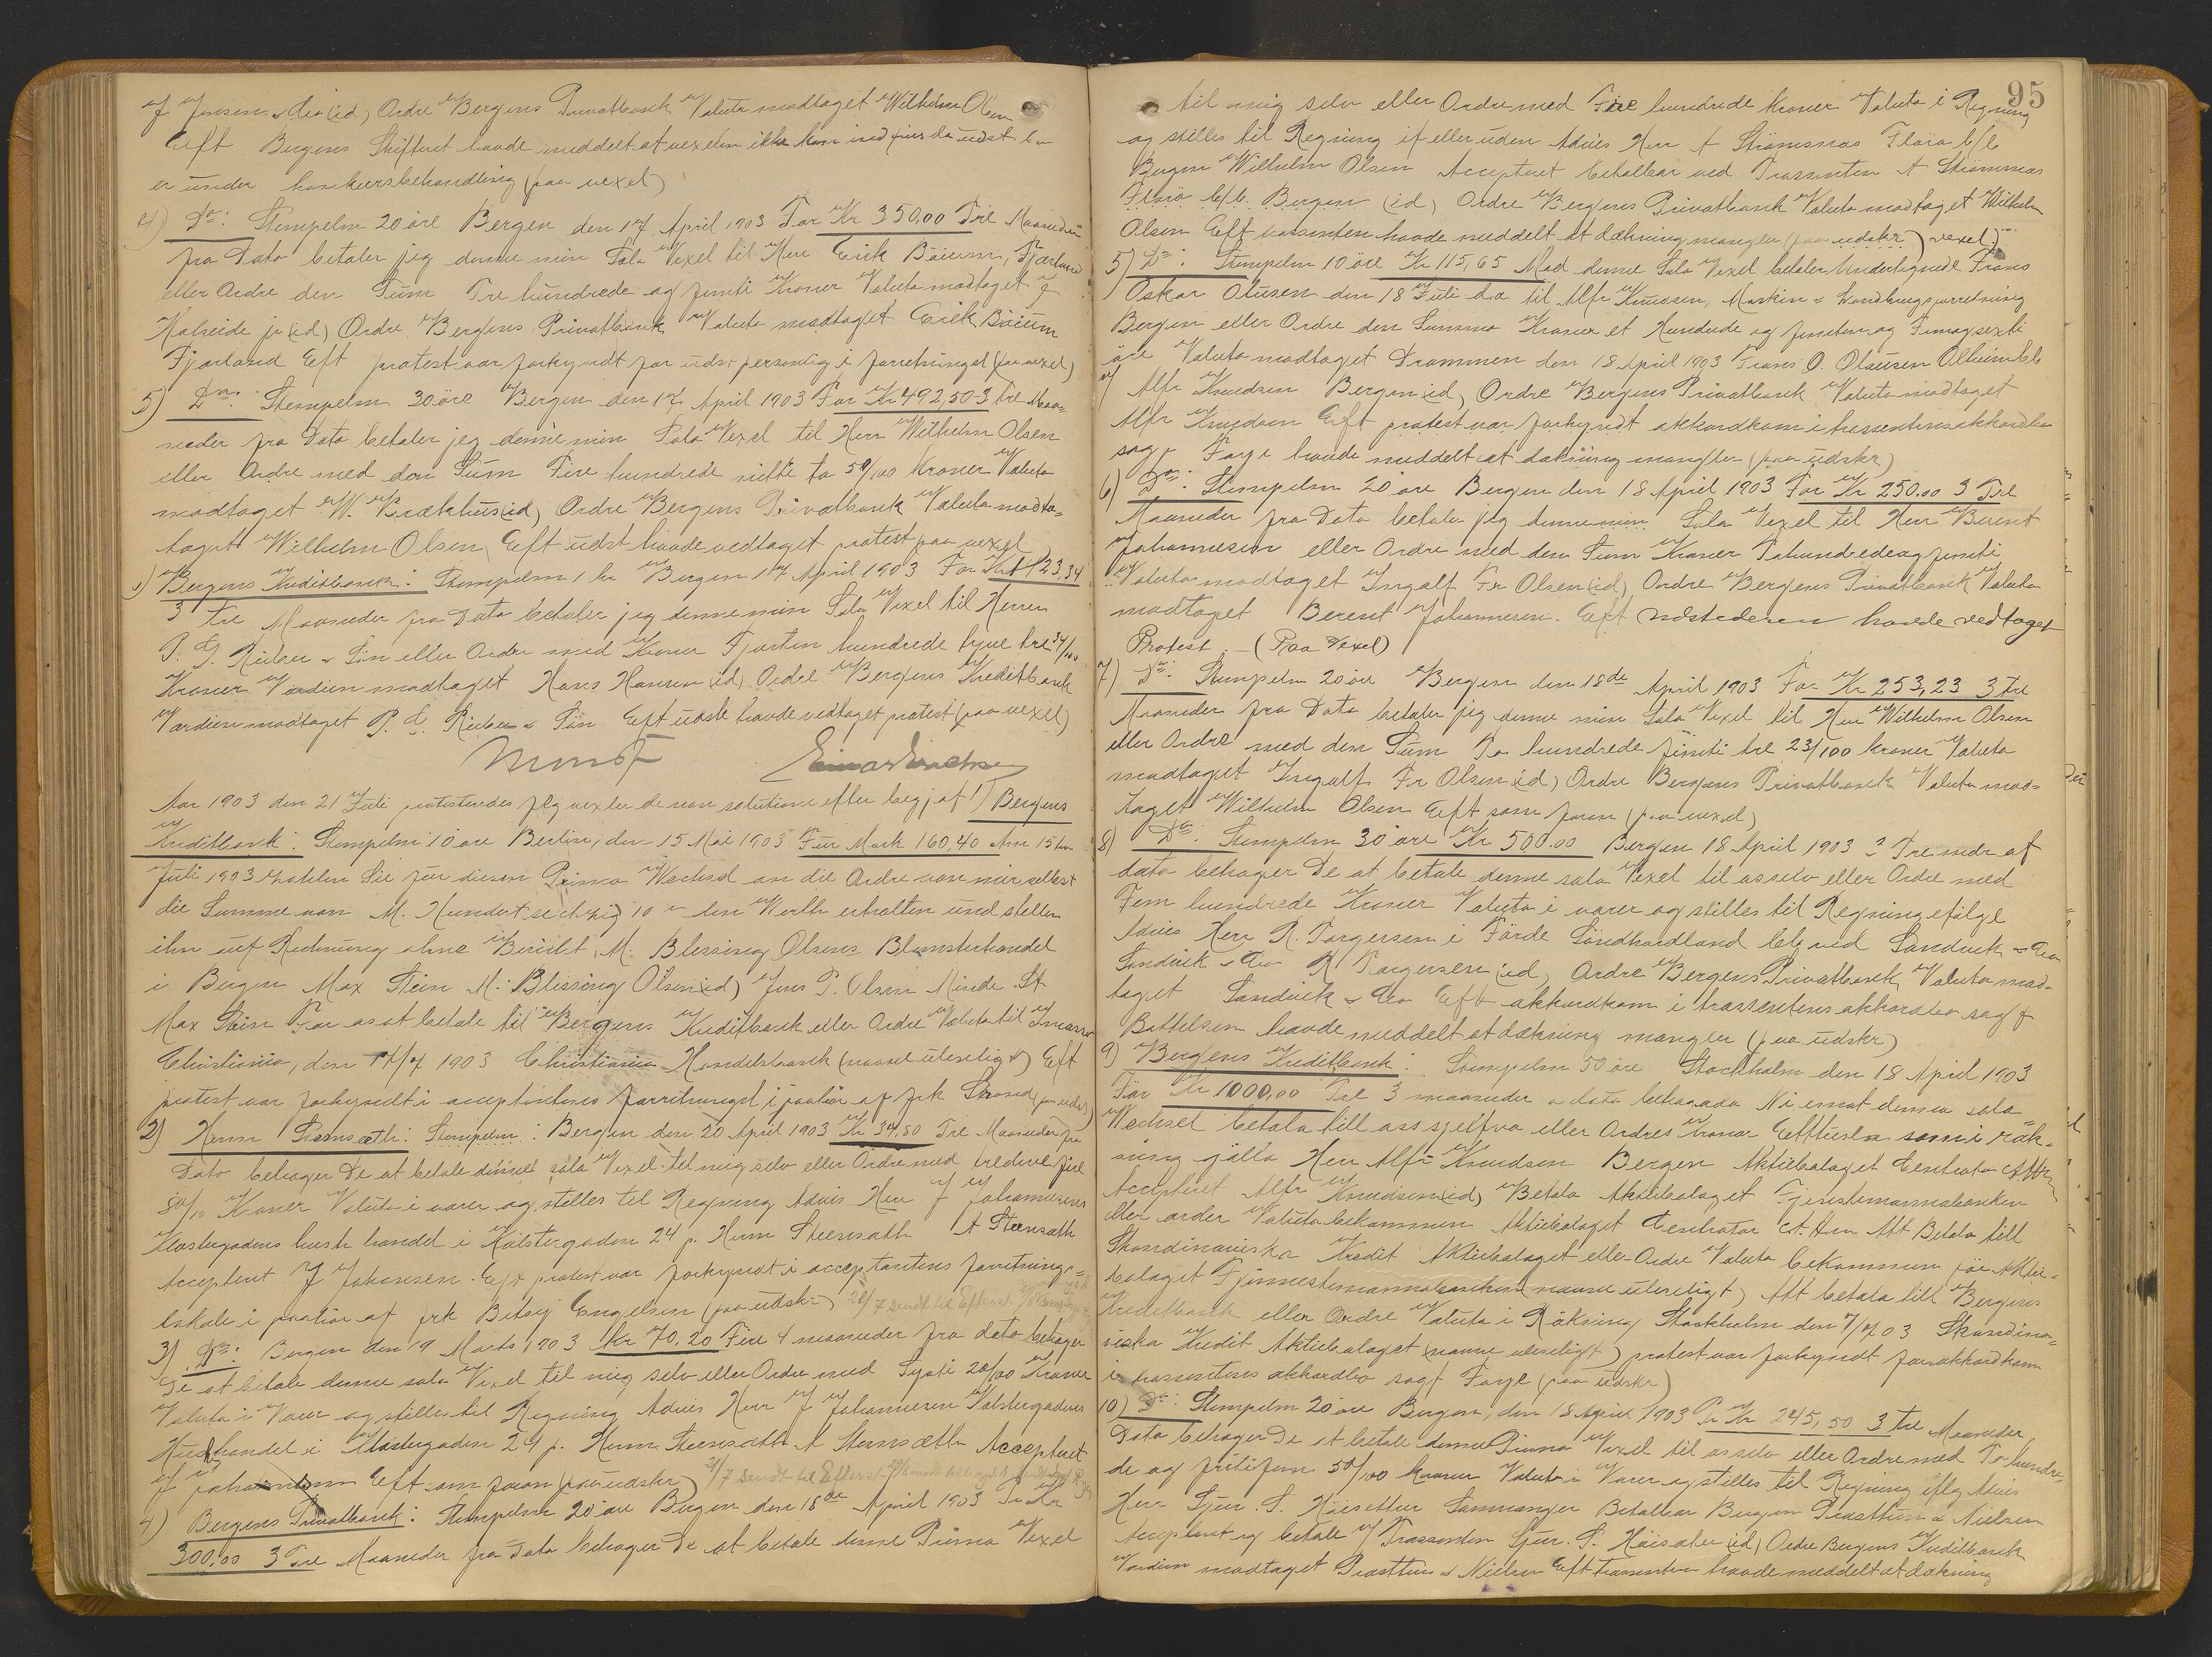 J Jensen & Co (id) Ordre Bergens Privatbank Valuta modtaget Wilhelm Olsen
Eft Bergens Skifteret havde meddelt at vexelen ikke kan indfries da udst bo
er under konkursbehandling (paa vexel)
4) Do: Stempelm 20 öre Bergen den 17 April 1903 For Kr 350,00 Tre Maaneder
fra Dato betaler jeg denne min Sola Vexel til Herr Erik Böium, Fjærland
eller Ordre den Sum Tre hundrede og femti Kroner Valuta modtaget J
Halseide jr (id) Ordre Bergens Privatbank Valuta modtaget Erik Böium
Fjærland Eft protest var forkyndt for udst personlig i forretningsl (paa vexel)
5) Do: Stempelm 30 öre Bergen den 17 April 1903 For Kr 492,50 3 tre Maa-
neder fra Dato betaler jeg denne min Sola Vexel til Herr Wilhelm Olsen
eller Ordre med den Sum Fire hundrede nitti to 50/100 Kroner Valuta
modtaget W. Krækhus (id) Ordre Bergens Privatbank Valuta modta-
taget Wilhelm Olsen, Eft udst havde vedtaget protest paa vexel
1) Bergens Kreditbank: Stempelm 1 kr Bergen 17 April 1903 For Kr 1423,34
3 tre Maaneder fra Dato betaler jeg denne min Sola Vexel til Herrer
P. G. Rieber & Sön eller Ordre med Kroner Fjorten hundrede tyve tre 34/100
Kroner Værdien modtaget Hans Hansen (id) Ordre Bergens Kreditbank
Værdien modtaget P. G. Rieber & Sön Eft udst havde vedtaget protest (paa vexel)
Aar 1903 den 21 Juli protesteredes flg vexler de non solutione efter begj af 1) Bergens
Kreditbank: Stempelm 10 öre Berlin, den 15 Mai 1903 Für Mark 160,40 Am 15ten
Juli 1903 zahlen Sie für diesen Prima Wechsel an die Ordre von mir selbst
die Summe von M. Hundert sechzig 10 den Werth erhalten und stellen
ihn auf Rechnung ohne Bericht M. Blessing Olsens Blomsterhandel
i Bergen Max Stein M. Blessing Olsen (id) Jens P. Olsen Minde St
Max Stein For os at betale til Bergens Kreditbank eller Ordre Valuta til Incasso
Christiania, den 17/7 1903 Christiania Handelsbank (navne uleselige) Eft
protest var forkyndt i acceptantens forretningsl i paahör af frk Strand (paa udskr)
2) Herm Steensæth: Stempelm: Bergen den 20 April 1903 Kr 34,80 Tre Maaneder fra
Dato behager De at betale denne sola Vexel til mig selv eller Ordre med tredive fire
80/10 Kroner Valuta i varer og stilles til Regning Advis Herr J Johannesens
Klostergadens kurh handel i Klostergaden 24 p. Herm Steensæth A Steensæth
Accepteret J Johansen. Eft protest var forkyndt i acceptantens forretnings-
lokale i paahör af frk Betsy Engelsen (paa udskr) 24/7 sendt til Efterst
3) Do: Bergen den 19 Marts 1903 Kr 70,20 Fire 4 maaneder fra dato behager
De at betale denne sola Vexel til mig selv eller Ordre med Sytti 20/100 Kroner
Valuta i Varer og stilles til Regning Advis Herr J Johannesen Klostergadens
Kurhhandel i Klostergaden 24 p. Herm Steensæth A Steensæth Accepteret
J Johannesen Eft som foran (paa udskr) 24/7 sendt til Efterst
4) Bergens Privatbank: Stempelm 20 öre Bergen den 18de April 1903 Pr Kr
300,00 3 Tre Maaneder fra Dato behager De at betale denne Prima Vexel
95
til mig selv eller Ordre med Tre hundrede Kroner Valuta i Regning
og stilles til Regning if eller uden Advis Herr A Strömsnæs Florö b/b
Bergen Wilhelm Olsen Accepteret betalbar ved Trassenten A Strömsnæs
Florö b/b. Bergen (id) Ordre Bergens Privatbank Valuta modtaget Wilhelm
Olsen Eft trassenten havde meddelt at dækning mangler (paa udskr) vexel)
5) Do: Stempelm 10 öre Kr 115,65 Mod denne Sola Vexel betaler Undertegnede Frans
Oskar Olausen den 18 Juli d.a til Alfr Knudsen, Maskin & forretning
Bergen eller Ordre den Summa Kroner et Hundrede og femten og Femogsexti
öre Valuta modtaget Drammen den 18 April 1903 Frans O. Olausen
Alfr Knudsen Bergen (id) Ordre Bergens Privatbank Valuta modtaget
Alfr Knudsen Eft protest var forkyndt akkordkom i trassentens akkordbo
sagf Farje havde meddelt at dækning mangler (paa udskr)
6) Do: Stempelm 20 öre Bergen den 18 April 1903 For Kr 250.00 3 Tre
Maaneder fra Dato betaler jeg denne min Sola Vexel til Herr Berent
Johannesen eller Ordre med den Sum Kroner Tohundredeogfemti
Valuta modtaget Ingolf Fr Olsen (id) Ordre Bergens Privatbank Valuta
modtaget Berent Johannesen. Eft Udstederen havde vedtaget
Protest. - (Paa Vexel)
7) Do: Stempelm 20 öre Bergen den 18de April 1903 For Kr 253,23 3 tre
Maaneder fra Dato betaler jeg denne min Sola Vexel til Herr Wilhelm Olsen
eller Ordre med den Sum To hundrede femti tre 23/100 kroner Valuta
modtaget Ingolf Fr Olsen (id) Ordre Bergens Privatbank Valuta mod-
taget Wilhelm Olsen Eft som foran (paa vexel)
8) Do: Stempelm 30 öre Kr 500.00 Bergen 18 April 1903 3 Tre mdr af
dato behager De at betale denne sola Vexel til os selv eller Ordre med
Fem hundrede Kroner Valuta i varer og stilles til Regning efölge
Advis Herr R. Torgersen i Förde Söndhordland bet ved Sandvik & Co
Sandvik & Co R Torgersen (id) Ordre Bergens Privatbank Valuta mod-
taget Sandvik & Co Eft akkordkom i trassentens akkordbo sagf
havde meddelt at dækning mangler (paa udskr)
9) Bergens Kreditbank: Stempelm 50 öre Stockholm den 18 April 1903
För Kr 1000,00 Tre 3 maanader a dato behagade Ni emot denna sola
Wechsel betala till oss sjelfva eller Ordres Kronor Ettusen som i räk-
ning gälla Herr Alfr Knudsen Bergen Aktiebolaget Centrator
Accepteret Alfr Knudsen (id) Betala Aktiebolaget Tjenstemannabanken
eller order Valuta bekommen Aktiebolaget Centrator Att Betala till
Skandinaviska Kredit Aktiebolaget eller Ordre Valuta bekommen för Aktie-
bolaget Tjänstemannabanken (navne uleseligt) Att betala till Bergens
Kreditbank eller Ordre Valuta i Räkning Stockholm den 7/7 03 Skandina-
viska Kredit Aktiebolaget (navne uleseligt) protest var forkyndt for akkordkom
i trassentens akkordbo sagf Farje (paa udskr)
10) Do: Stempelm 20 öre Bergen, den 18 April 1903 Pr Kr 245,50 3 tre Maaneder
Dato behager De at betale denne Prima Vexel til os selv eller Ordre med To hundre-
de og fritifem 50/100 kroner Valuta i Varer og stilles til Regning iflg Advis
Herr Sjur. S. Höisæter Samnanger Betalbar Bergen Præsttun & Nielsen
Accepteret og betale Trassenten Sjur. S. Höisæter (id) Ordre Bergens Kreditbank
Værdien modtaget Præsttun & Nielsen Eft trassenten havde meddelt at dækning